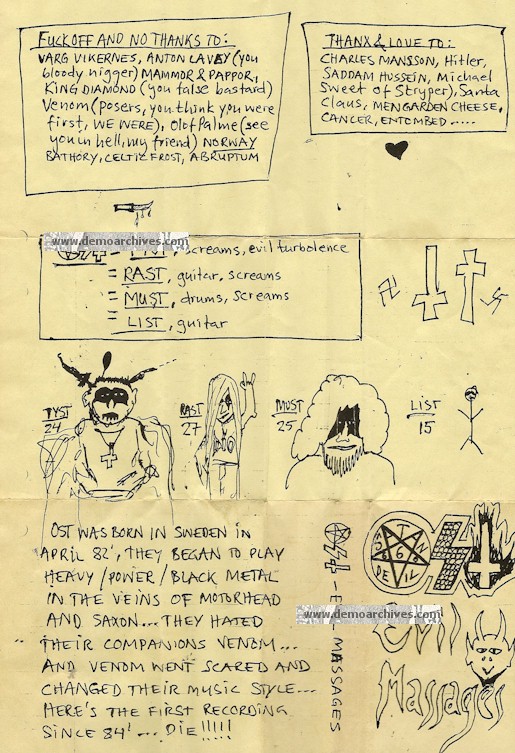 FUCKOFF AND NO THANKS TO:
VARG VIKERNES, ANTON LAVEY (you
bloody nigger) MAMMOR & PAPPOR,
KING DIAMOND (you false bastard)
Venom (posers, you think you were
first, WE WERE), Olof Palme (see
you in hell, my friend) NORWAY
BATHORY, CELTIC FROST, ABRUPTUM
THANX & LOVE TO:
CHARLES MANSSON, Hitler,
SADDAM HUSSEIN, Michael
Sweet of Stryper), Santa
Claus, MENGARDEN CHEESE,
CANCER, ENTOMBED.....
www.demoarchives.com
screams, evil turbolence
= RAST, guitar, screams
= MUST, drums, screams
= LIST, guitar
TYST
24
RAST
27
MUST
25
LIST
15
OST WAS BORN IN SWEDEN IN
APRIL 82', THEY BEGAN TO PLAY
HEAVY/POWER/BLACK METAL
IN THE VEINS OF MOTORHEAD
AND SAXON... THEY HATED
THEIR COMPANIONS VENOM...
AND VENOM WENT SCARED AND
CHANGED THEIR MUSIC STYLE...
HERE'S THE FIRST RECORDING
SINCE 84'... DIE!!!!!
OST - EVIL MASSAGES
www.demoarchives.com
OST
Evil
Massages